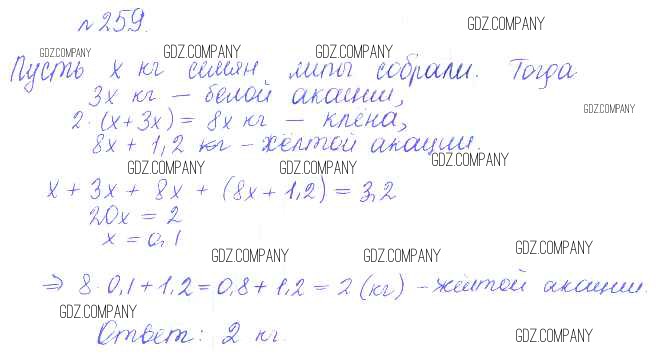 № 259.
GDZ.COMPANY
GDZ.COMPANY GDZ.COMPANY GDZ.COMPANY
Пусть x кг семян липы собрали. Тогда
3x кг – белой акации,
GDZ.COMPANY
2·(x+3x) = 8x кг – клёна,
8x + 1,2 кг – жёлтой акации.
GDZ.COMPANY GDZ.COMPANY GDZ.COMPANY
x + 3x + 8x + (8x + 1,2) = 3,2
20x = 2
x = 0,1
GDZ.COMPANY GDZ.COMPANY GDZ.COMPANY
⇒ 8·0,1 + 1,2 = 0,8 + 1,2 = 2 (кг) – жёлтой акации.
GDZ.COMPANY
Ответ: 2 кг.
GDZ.COMPANY